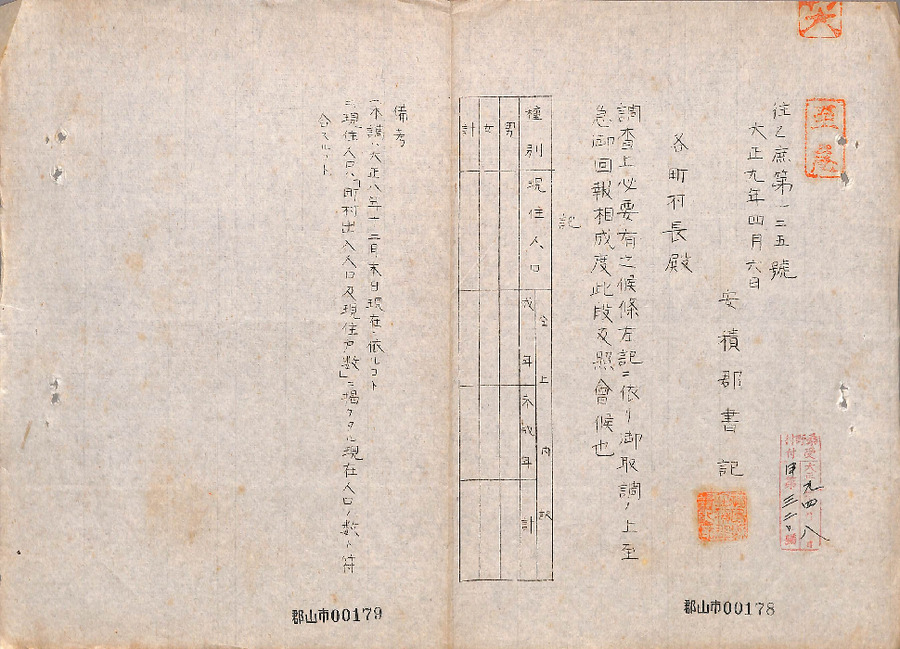 至急
往乙庶第一二五號
大正九年四月六日
安積郡書記
各町村長殿
調査上必要有之候條左記ニ依リ御取調ノ上至
急御回報相成度此段及照會候也
記
種別 現住人口 仝上内訳
成年 未成年 計
男
女
計
備考
一、本調ハ大正八年十二月末日現在ニ依ルコト
二、現住人口ハ「町村出入人口及現住戸数」ニ掲ケタル現在人口ノ数ト符
合スルコト
郡山市00178
郡山市00179